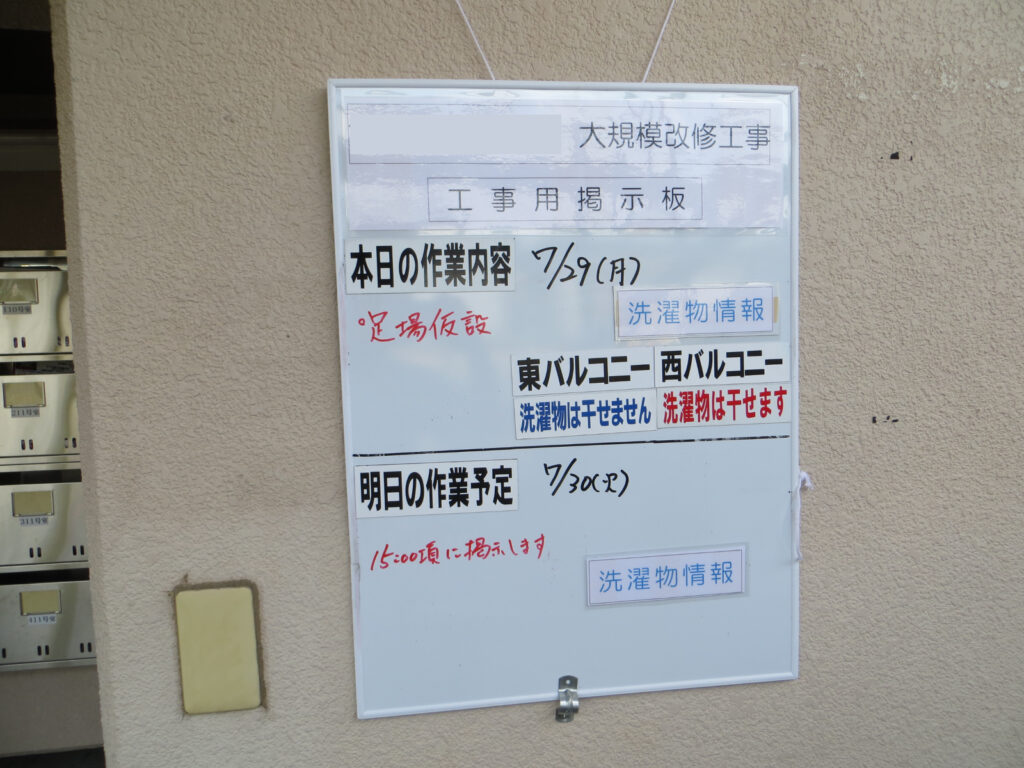 大規模改修工事
工事用掲示板
本日の作業内容 7/29(月)
足場仮設
洗濯物情報
東バルコニー 西バルコニー
洗濯物は干せません 洗濯物は干せます
明日の作業予定 7/30(火)
15:00頃に掲示します
洗濯物情報
211号室
311号室
411号室